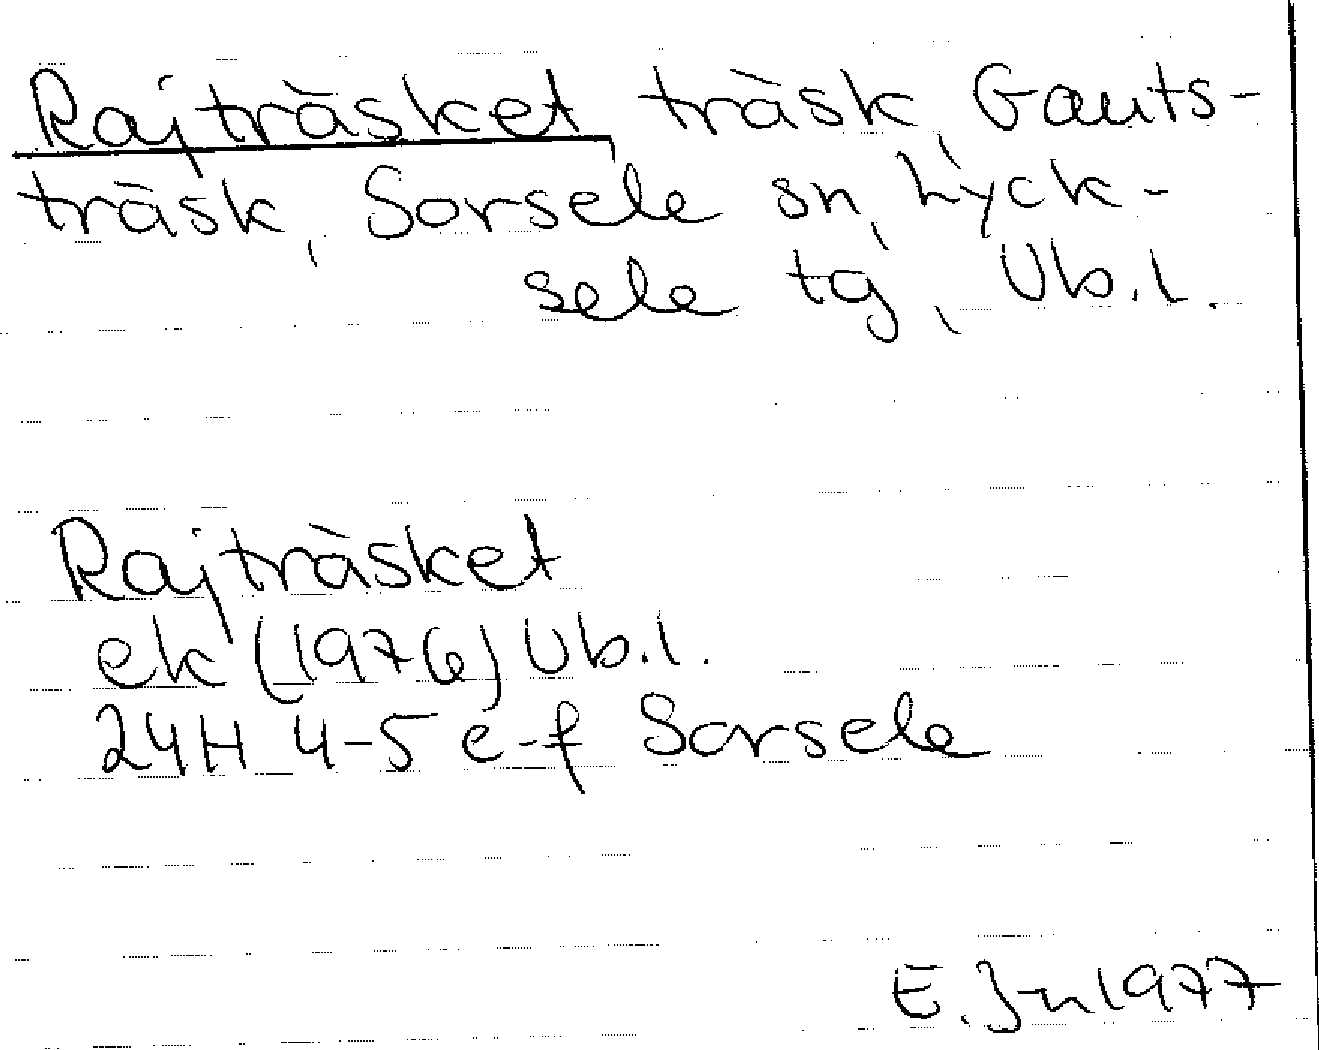 Rajträsket träsk, Gauts-
träsk, Sorsele sn, Lyck-
sele tg, Vb.l.
Rajträsket
ek (1976) Vb.l.
24H 4-5 e-f Sorsele
E. Jn 1977